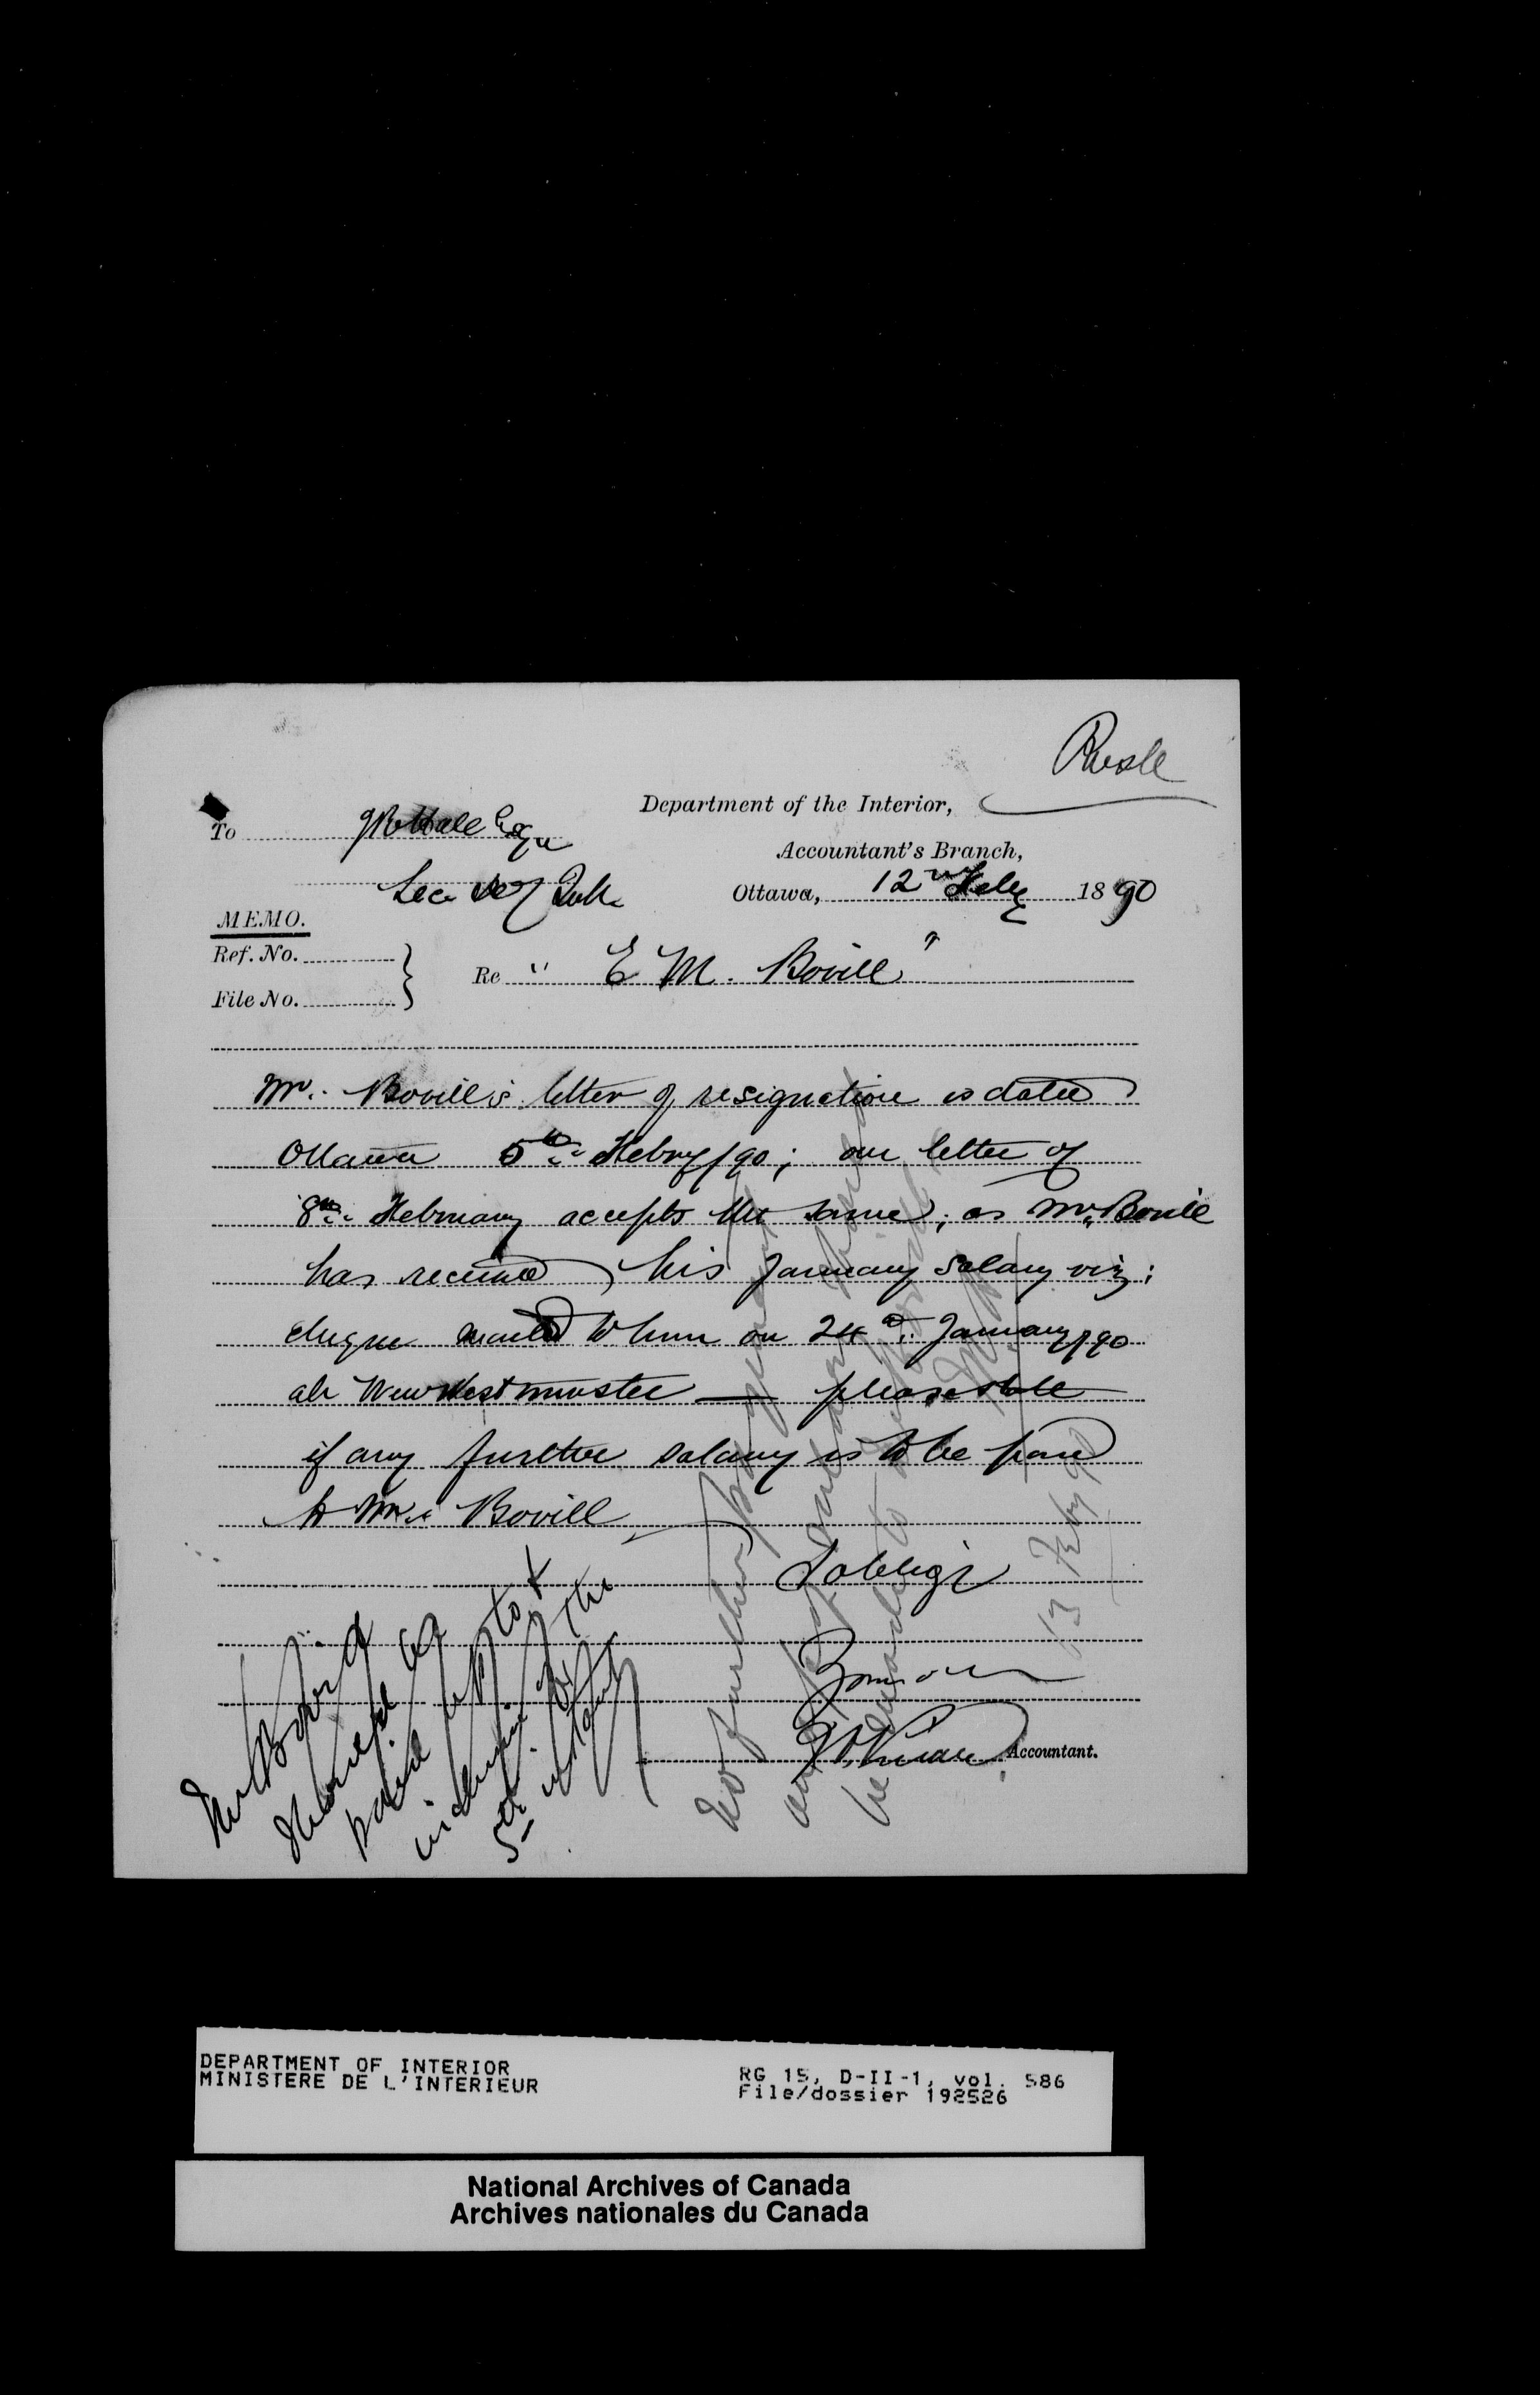 Rush
Department of the Interior,
Accountant's Branch,
To J R Hall Esqr
Sec. Dept Int.
Ottawa, 12th Feby 1890
MEMO.
Ref. No.
File No.
Re " E M. Bovill "
Mr. Bovill's letter of resignation is dated
Ottawa 5th Febry/90; our letter of
8th February accepts the same; as Mr. Bovill
has received his January salary viz:
cheque mailed to him on 24th January/90
at New Westminster — please state
if any further salary is to be paid
to Mr. Bovill
& oblige
Accountant.
Mr Bovill
should be
paid up to &
including the
5th instant
No further payment
to
be made to
13 Feby 90
DEPARTMENT OF INTERIOR
MINISTERE DE L'INTERIEUR
RG 15, D-II-1, vol. 586
File/dossier 192526
National Archives of Canada
Archives nationales du Canada